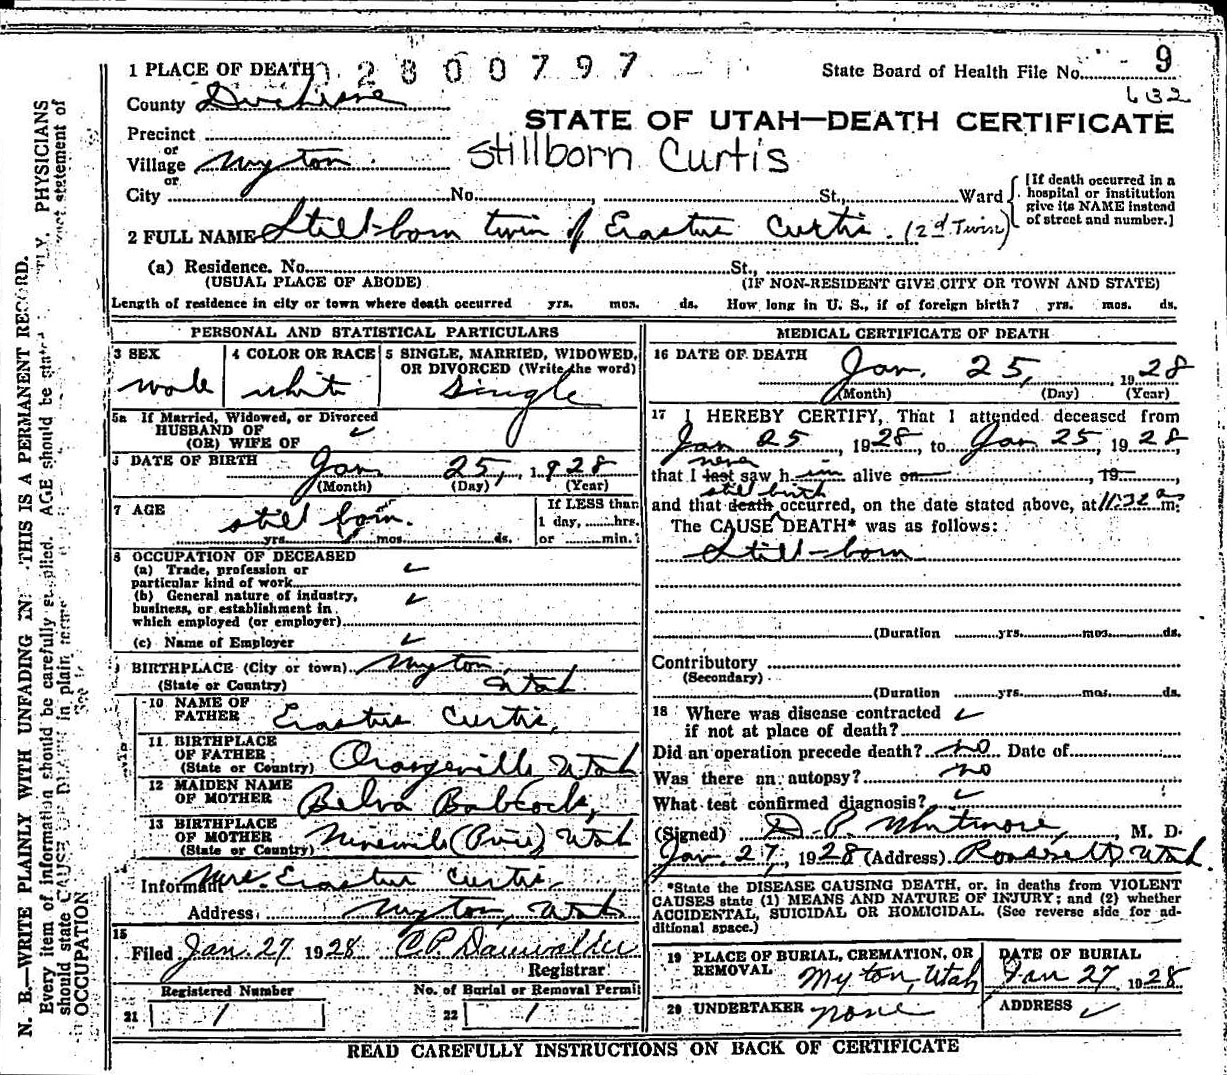 1 PLACE OF DEATH 02800797 State Board of Health File No. 9
County Duchesne 632
STATE OF UTAH—DEATH CERTIFICATE
Precinct
or
Village Myton. Stillborn Curtis
or
City No. , St., Ward [If death occurred in a hospital or institution give its NAME instead of street and number.]
2 FULL NAME Still-born twin of Erastus Curtis. (2d Twin)
(a) Residence. No. St.,
(USUAL PLACE OF ABODE) (IF NON-RESIDENT GIVE CITY OR TOWN AND STATE)
Length of residence in city or town where death occurred yrs. mos. ds. How long in U. S., if of foreign birth? yrs. mos. ds.
PERSONAL AND STATISTICAL PARTICULARS
3 SEX 4 COLOR OR RACE 5 SINGLE, MARRIED, WIDOWED, OR DIVORCED (Write the word)
male white Single
5a If Married, Widowed, or Divorced
HUSBAND OF
(OR) WIFE OF
DATE OF BIRTH Jan 25, 1928
(Month) (Day) (Year)
7 AGE still born. If LESS than
1 day, hrs.
yrs. mos. ds. or min.
8 OCCUPATION OF DECEASED
(a) Trade, profession or
particular kind of work
(b) General nature of industry,
business, or establishment in
which employed (or employer)
(c) Name of Employer
BIRTHPLACE (City or town) Myton,
(State or Country) Utah
10 NAME OF
FATHER Erastus Curtis,
11 BIRTHPLACE
OF FATHER
(State or Country) Orangeville Utah
12 MAIDEN NAME
OF MOTHER Belva Babcock,
13 BIRTHPLACE
OF MOTHER
(State or Country) Ninemile (Price) Utah
Informant Mrs. Erastus Curtis,
Address Myton, Utah
15
Filed Jan. 27 1928
Registrar
Registered Number No. of Burial or Removal Permit
21 1 22 1
MEDICAL CERTIFICATE OF DEATH
16 DATE OF DEATH
Jan. 25, 1928
(Month) (Day) (Year)
17 I HEREBY CERTIFY, That I attended deceased from
Jan 25, 1928, to Jan 25, 1928,
never
that I last saw him alive on , 19
still birth
and that death occurred, on the date stated above, at 11:32 a m.
The CAUSE DEATH* was as follows:
Still-born
(Duration yrs. mos. ds.
Contributory
(Secondary)
(Duration yrs. mos. ds.
18 Where was disease contracted
if not at place of death?
Did an operation precede death? no Date of
Was there an autopsy? no
What test confirmed diagnosis?
(Signed) D. P. Whitmore, M. D.
Jan. 27, 1928 (Address) Utah
*State the DISEASE CAUSING DEATH, or, in deaths from VIOLENT
CAUSES state (1) MEANS AND NATURE OF INJURY; and (2) whether
ACCIDENTAL, SUICIDAL OR HOMICIDAL. (See reverse side for ad-
ditional space.)
19 PLACE OF BURIAL, CREMATION, OR REMOVAL Myton, Utah
DATE OF BURIAL Jan 27 1928
20 UNDERTAKER none ADDRESS
READ CAREFULLY INSTRUCTIONS ON BACK OF CERTIFICATE
N. B.—WRITE PLAINLY WITH UNFADING IN THIS IS A PERMANENT RECORD.
Every item of information should be carefully supplied. AGE should be PHYSICIANS
should state CAUSE in plain statement of
OCCUPATION